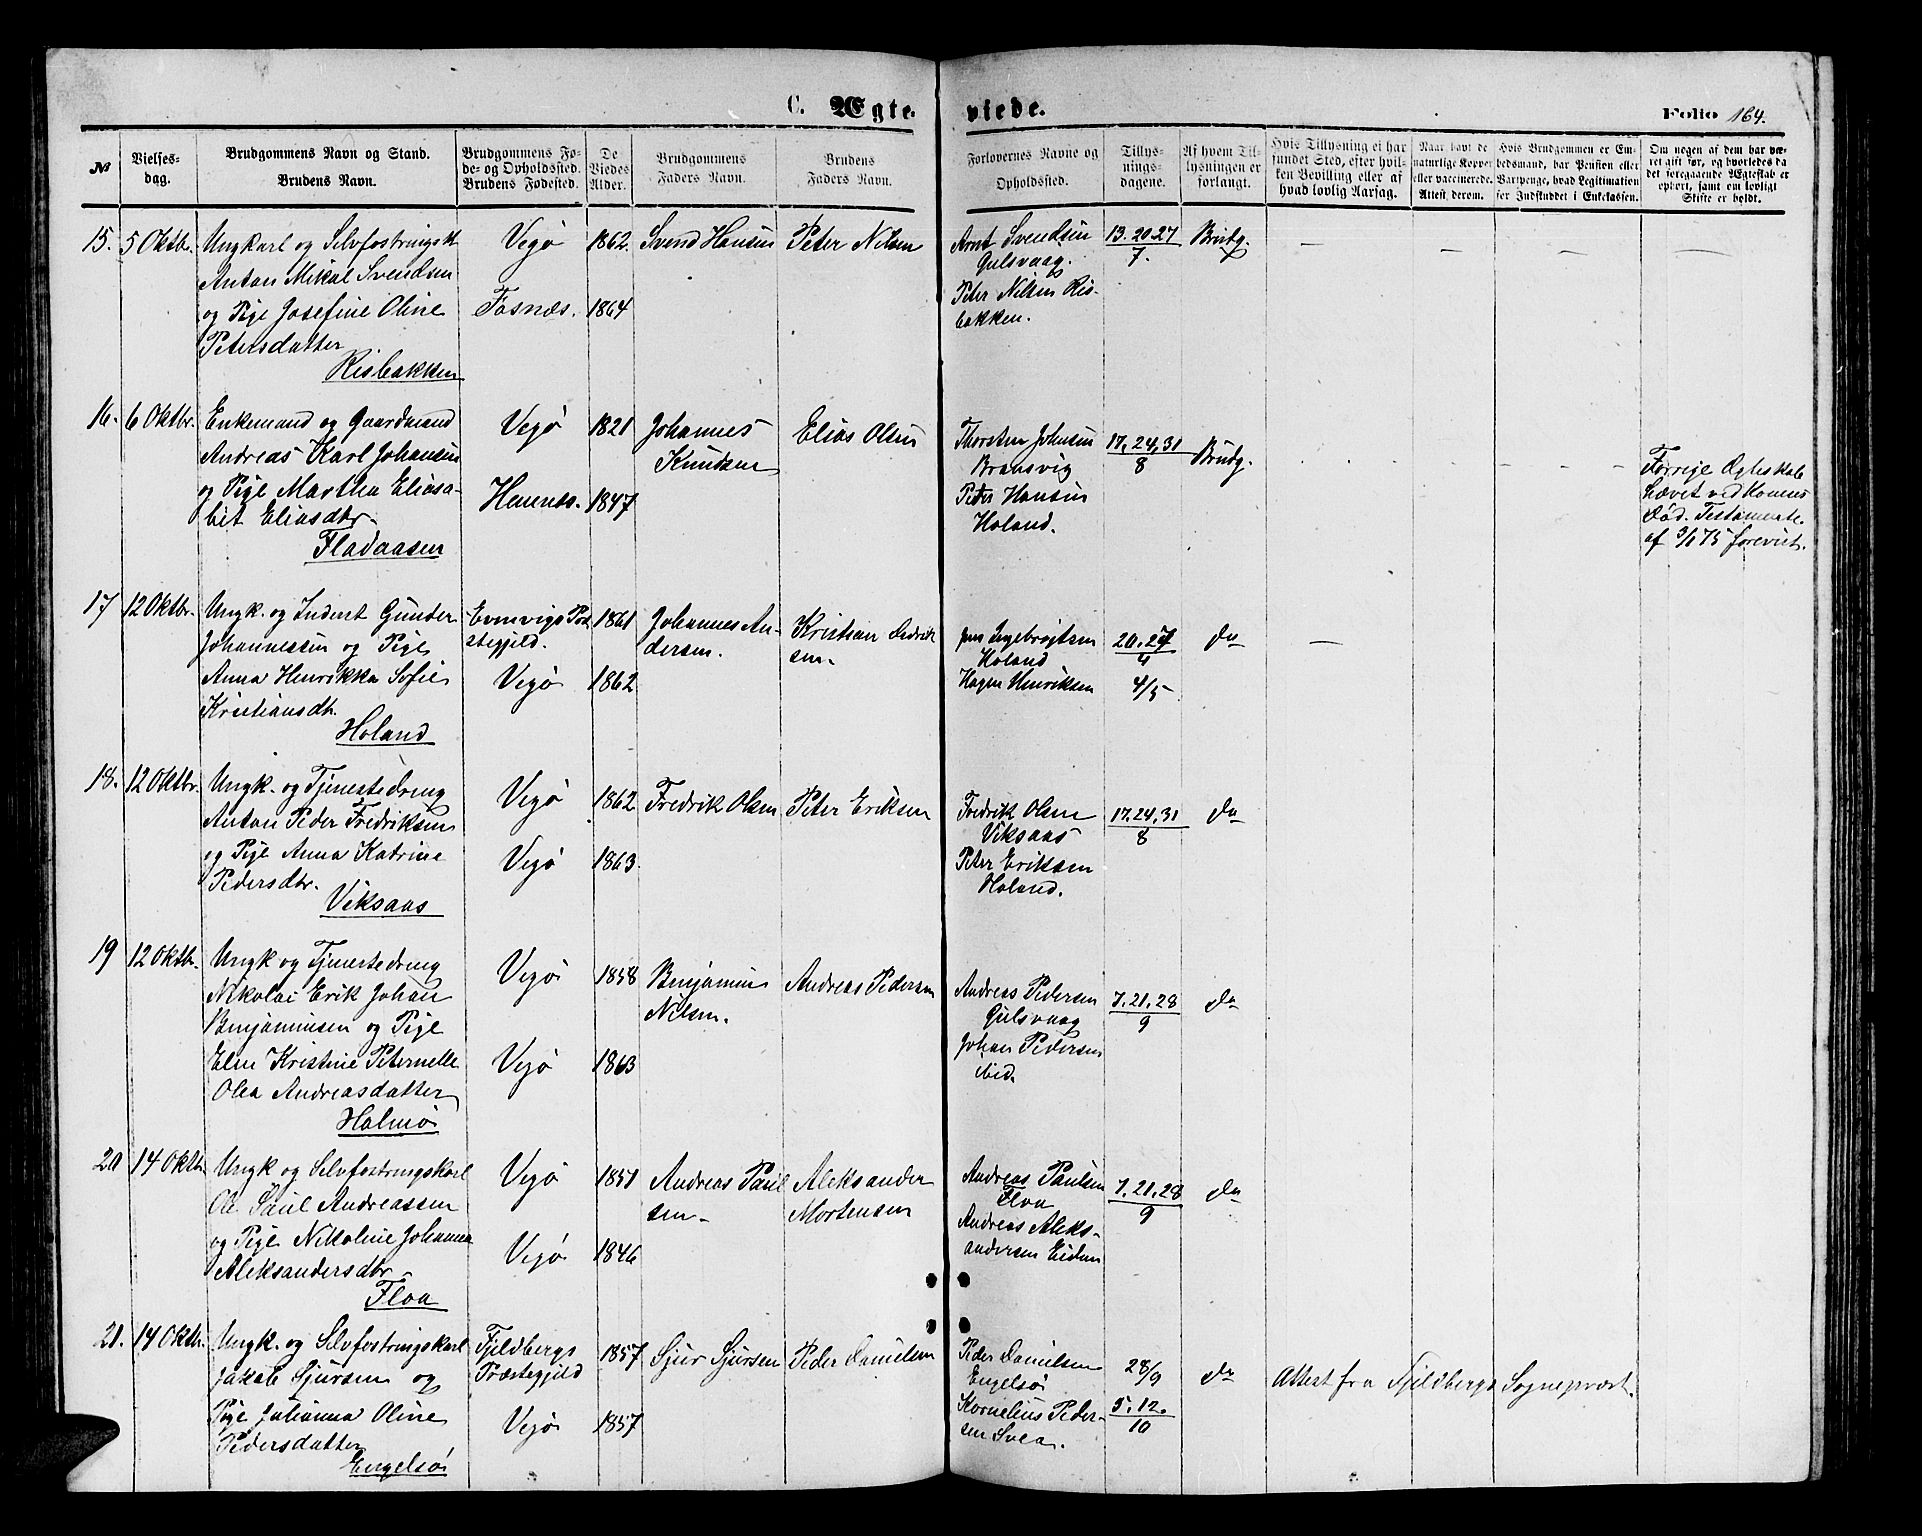 C. Ægte-
viede.
Folio 164.
№
Vielses-
dag.
Brudgommens Navn og Stand.
Brudens Navn.
Brudgommens Fø-
de- og Opholdssted.
Brudens Fødested.
De
Viedes
Alder.
Brudgommens
Faders Navn.
Brudens
Faders Navn.
Forlovernes Navne og
Opholdssted.
Tillys-
nings-
dagene.
Af hvem Til-
lysningen er
forlangt.
Hvis Tillysning ei har
fundet Sted, efter hvil-
ken Bevilling eller af
hvad lovlig Aarsag.
Naar havt de
naturlige Kopper
eller vaccinerede.
Attest derom.
Hvis Brudgommen er En-
kedsmand, har Pension eller
Vartpenge, hvad Legitimation
for Indskuddet i Enkekassen.
Om nogen af dem har væ-
ret gift før, og hvorledes da
det foregaaende Ægteskab er
ophørt, samt om lovligt
Skifte er holdt.
15. 5 Oktbr.
Ungkarl og Selvfostringsk
Anton Mikal Svendsen
og Pige Josefine Oline
Petersdatter
Risbakken
Vegø
Fosnæs.
1862.
1864
Svend Hansen
Peter Nilsen
Arnt Svendsen
Gulsvaag.
Peter Nilsen Ris-
bakken.
13. 20. 27
7.
Brudg.
— — — —
16. 6 Oktbr.
Enkemand og Gaardmand
Andreas Karl Johansen
og Pige Martha Elisa-
bet Eliasdtr.
Fladaasen
Vegø
1821
1847
Johannes
Knudsen
Elias Olsen
Thorsten Johnsen
Bransvig
Peter Hansen
Holand.
17, 24, 31
8
Brudg.
Forrige Ægteskab
hævet ved Konens
Død. Testamente
af 3/1 75 forevist.
17 12 Oktbr.
Ungk. og Inderst Gunder
Johannessen og Pige
Anna Henrikka Sofie
Kristiansdtr.
Holand
Evenvigs Præ
stegjeld.
Vegø
1861
1862
Johannes An-
dersen.
Kristian Dedrik
sen.
Jens Ingebrigtsen
Holand
Hagen Henriksen
20. 27
4
4/5
do
—
18. 12 Oktbr.
Ungk. og Tjenestedreng
Anton Peder Fredriksen
og Pige Anna Katrine
Pedersdtr.
Viksaas
Vegø
Vegø
1862
1863.
Fredrik Olsen
Peter Eriksen
Fredrik Olsen
Viksaas
Peter Eriksen
Holand.
17. 24. 31
8
do
19 12 Oktbr.
Ungk og Tjenestedreng
Nikolai Erik Johan
Benjaminsen og Pige
Elen Kristine Peternelle
Olea Andreasdatter
Holmø
Vegø
Vegø
1858
1863
Benjamin
Nilsen.
Andreas Pedersen
Andreas Pedersen
Gulsvaag
Johan Pedersen
ibid.
7. 21. 28
9
do
20 14 Oktbr.
Ungk og Selvfostringskarl
Ole Paul Andreassen
og Pige Nikoline Johanna
Aleksandersdtr
Floa
Vegø
Vegø
1851
1846
Andreas Paul
sen.
Aleksander
Mortensen
Andreas Paulsen
Floa
Andreas Aleks-
andersen Eidem
7. 21. 28
9
do
21. 14 Oktbr.
Ungk. og Selvfostringskarl
Jakob Sjursen og
Pige Julianna Oline
Pedersdatter
Engelsø
Fjeldbergs
Præstegjeld
Vegø
1857
1857
Sjur Sjursen
Peder Danielsen
Peder Danielsen
Engelsø
Kornelius Peder-
sen Svea.
28/9
5. 12.
10
do
Attest fra Fjeldbergs Sognepræst.